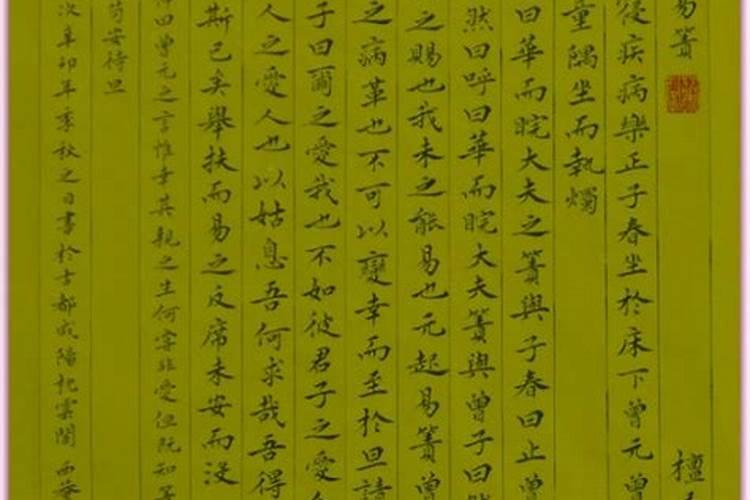 易簀 檀
寝疾病樂正子春坐於床下曾元曾
童隅坐而執燭
曰華而睆大夫之簀與子春曰止曾
然曰呼曰華而睆大夫簀與曾子曰
之賜也我未之能易也元起易簀曾
之病革也不可以變幸而至於旦請
子曰爾之愛我也不如彼君子之愛
人之愛人也以姑息吾何求哉吾得
斯已矣舉扶而易之反席未安而沒
曰曾元之言惟幸其親之生何字非愛但既知
苟安待旦
次辛卯年季秋之日書於古都咸陽杞雲閣